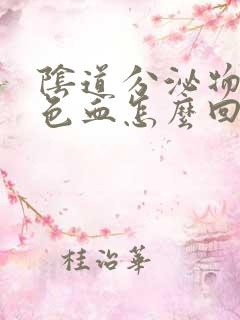 陰道分泌物
色血怎麼回
桂治華